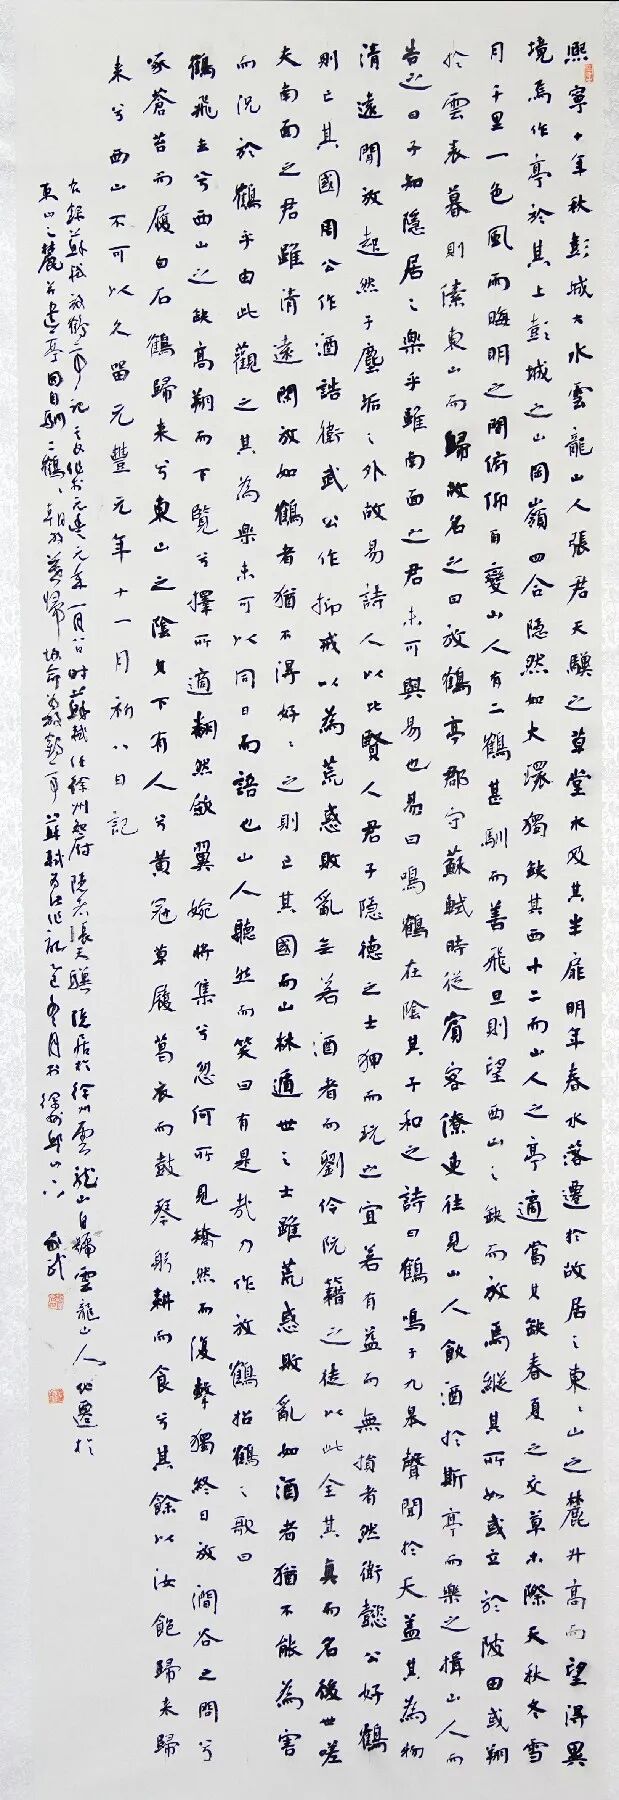 熙寧十年秋彭城大水雲龍山人張君天驥之草堂水及其半扉明年春水落遷於故居々東々山之麓升高而望得異
境焉作亭於其上彭城之山岡嶺四合隱然如大環獨缺其西十二而山人之亭適當其缺春夏之交草木際天秋冬雪
月千里一色風雨晦明之間俯仰百變山人有二鶴甚馴而善飛旦則望西山々缺而放焉縱其所如或立於陂田或翔
於雲表暮則傃東山而歸故名之曰放鶴亭郡守蘇軾時從賓客僚吏往見山人飲酒於斯亭而樂之揖山人而
告之曰子知隱居々樂乎雖南面之君未可與易也易曰鳴鶴在陰其子和之詩曰鶴鳴于九皋聲聞於天蓋其為物
清遠閒放超然于塵垢々外故易詩人以比賢人君子隱德之士狎而玩之宜若有益而無損者然衛懿公好鶴
則亡其國周公作酒誥衛武公作抑戒以為荒惑敗亂無若酒者而劉伶阮籍之徒以此全其真而名後世嗟
夫南面之君雖清遠閑放如鶴者猶不得好々之則亡其國而山林遁世々士雖荒惑敗亂如酒者猶不能為害
而況於鶴乎由此觀之其為樂未可以同日而語也山人聽然而笑曰有是哉乃作放鶴招鶴々歌曰
鶴飛去兮西山之缺高翔而下覽兮擇所適翻然斂翼婉將集兮忽何所見矯然而復擊獨終日放澗谷之間兮
啄蒼苔而履白石鶴歸來兮東山之陰其下有人兮黃冠草履葛衣而鼓琴躬耕而食兮其餘以汝飽歸來歸
來兮西山不可以久留元豐元年十一月初八日記
右錄蘇軾放鶴亭記文作於元豐元年一月八日時蘇軾任徐州知府隱士張天驥隱居於徐州雲龍山自號雲龍山人他遷於
東山之麓並建亭因自馴二鶴々朝放暮歸故命為放鶴亭蘇軾為此作記